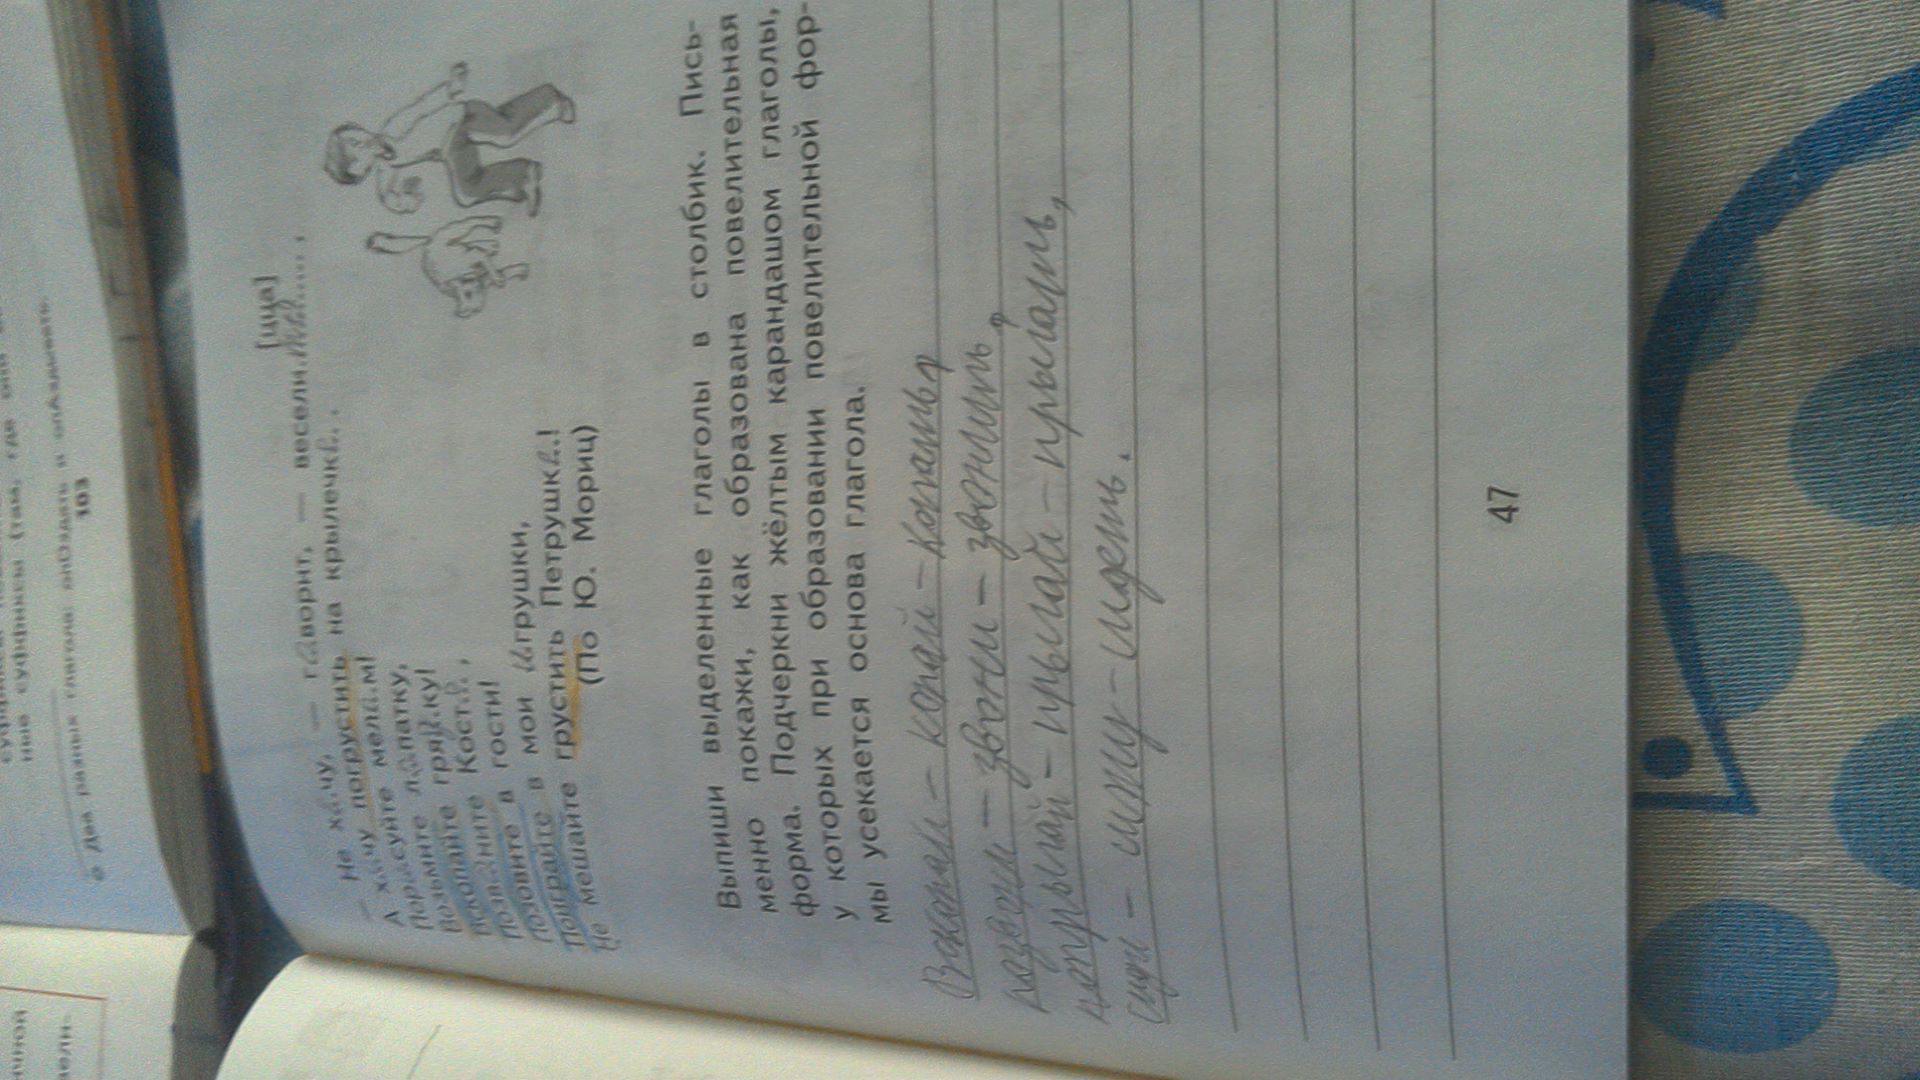 ичной
ные суффиксы (там, где они
вели-
Два разных глагола: опОздать и опАздывать.
103
[цца]
— Не хочу, — говорит, — веселиться ,
А хочу погрустить на крылечке .
Порисуйте мелом!
Возьмите лопатку,
Вскопайте грядку!
Позвоните Косте ,
Позовите в гости!
Поиграйте в мои игрушки,
Не мешайте грустить Петрушке!
(По Ю. Мориц)
Выпиши выделенные глаголы в столбик. Пись-
менно покажи, как образована повелительная
форма. Подчеркни жёлтым карандашом глаголы,
у которых при образовании повелительной фор-
мы усекается основа глагола.
Вскопай – копай – копать,
позвони – звони – звонить,
попрыгай – прыгай – прыгать,
сиди – сижу – сидеть.
47